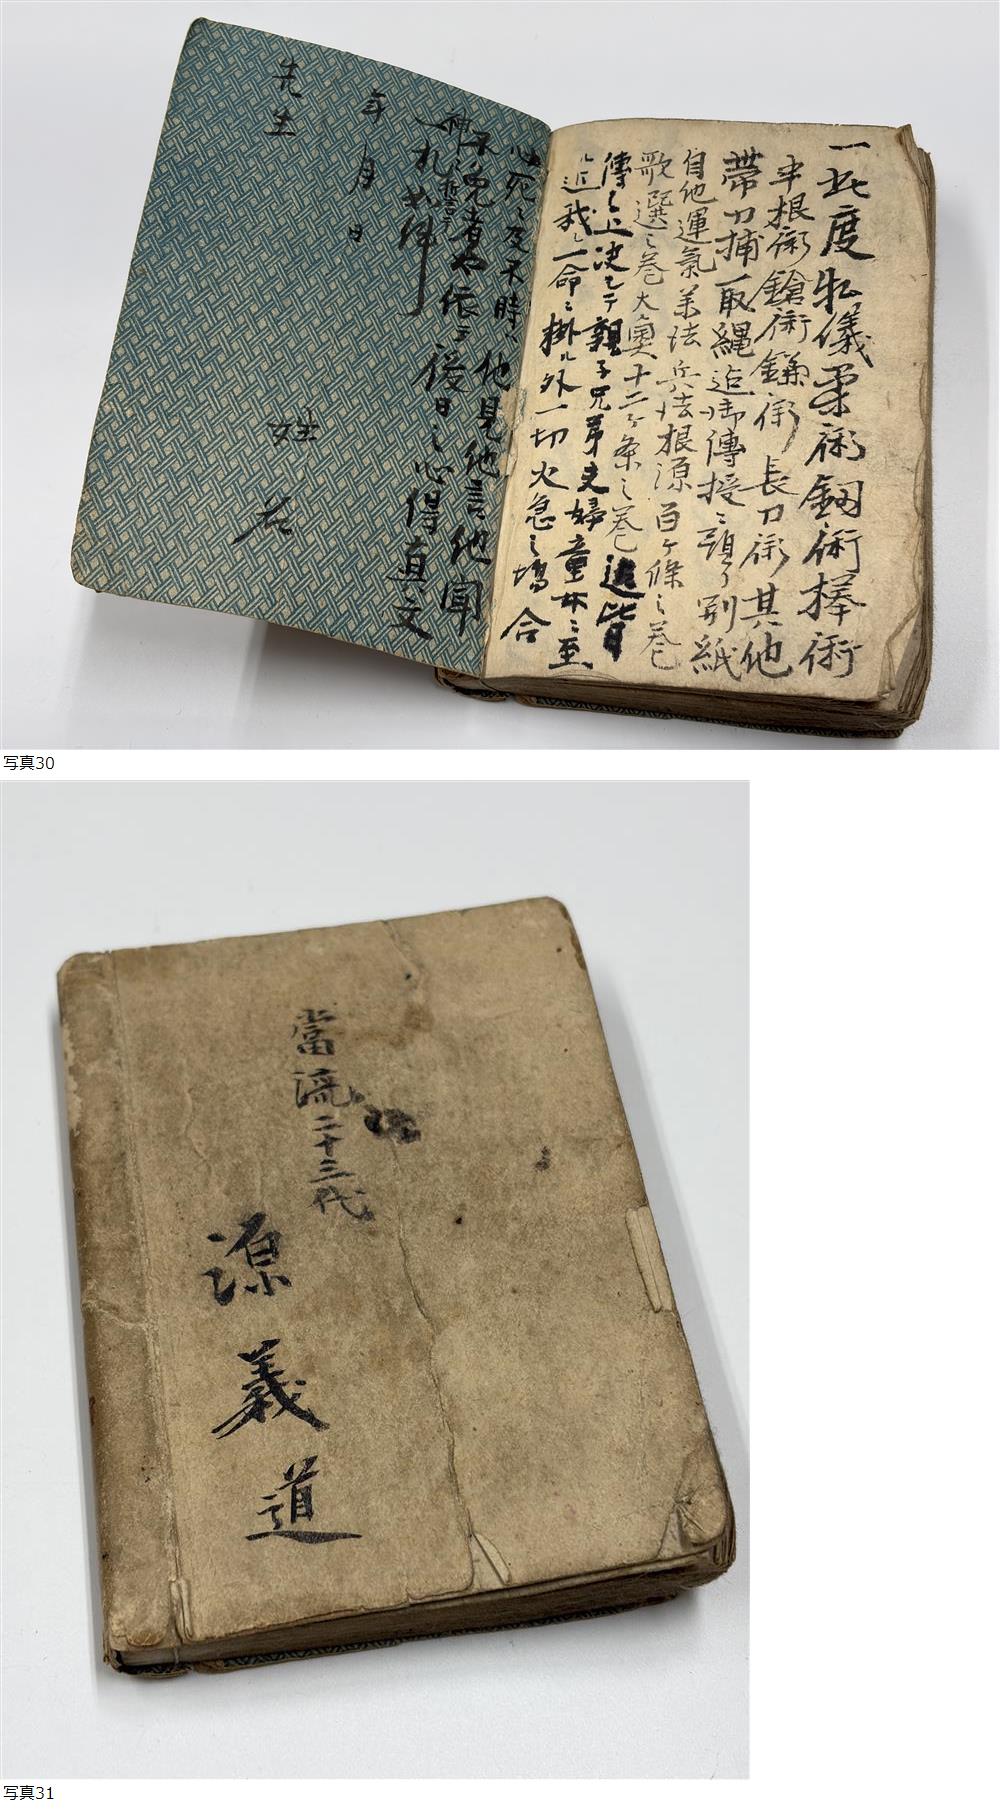 一此度私儀柔術釼術棒術
半根術鎗術鎌術長刀術其他
帯刀捕取縄迠御傳授ニ預リ別紙
自他運氣美法兵法根源百ヶ條之巻
歌選之巻大奥十二ヶ条之巻迠皆
傳之上决乄テ親子兄弟夫婦童ニ至
ル迠我一命ニ掛ル外一切火急之場合
必死之度不時ニ他見他言他聞
不免者也依テ後日之心得直文
神之誓
一札如件
年月日
先生
若
写真30
當流二十三代
源義道
写真31